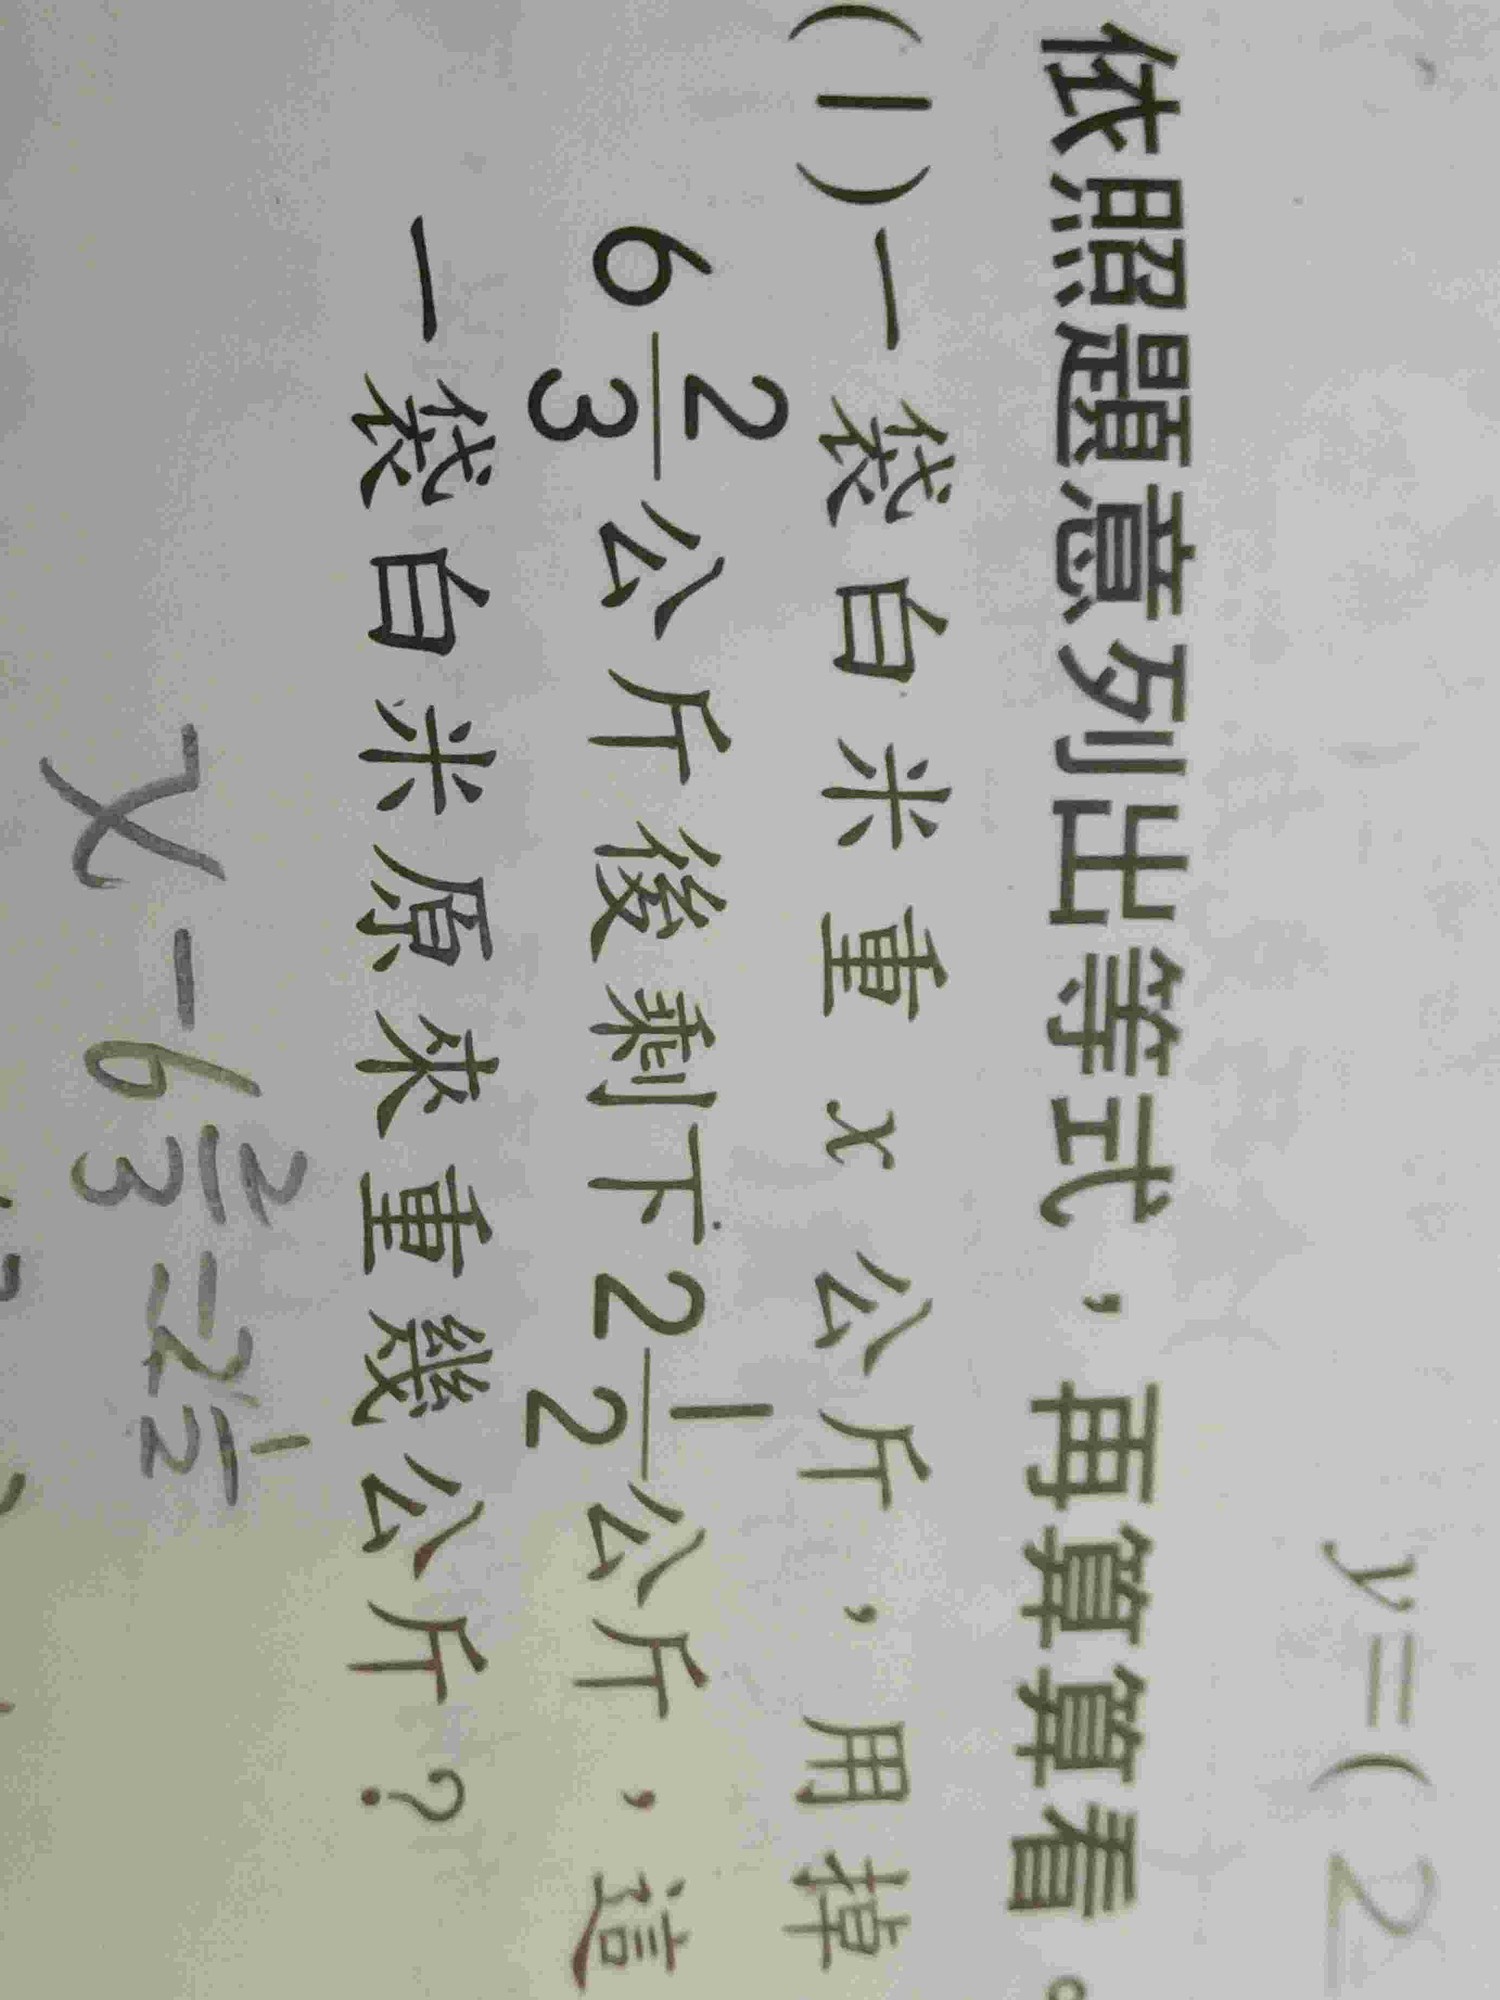 y=(2
依照題意列出等式，再算算看。
(1)一袋白米重 x 公斤，用掉
6 2/3 公斤後剩下2 1/2 公斤，這
一袋白米原來重幾公斤？
x - 6 2/3 = 2 1/2